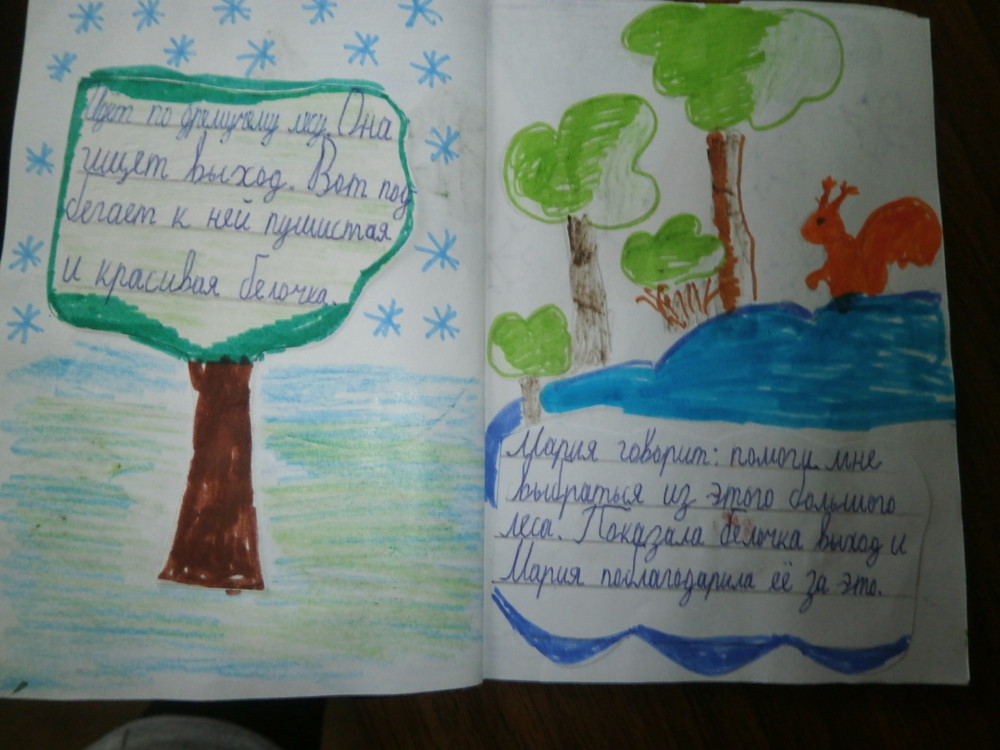 Идёт по дремучему лесу. Она
ищет выход. Вот под
бегает к ней пушистая
и красивая белочка.
Мария говорит: помоги мне
выбраться из этого большого
леса. Показала белочка выход и
Мария поблагодарила её за это.